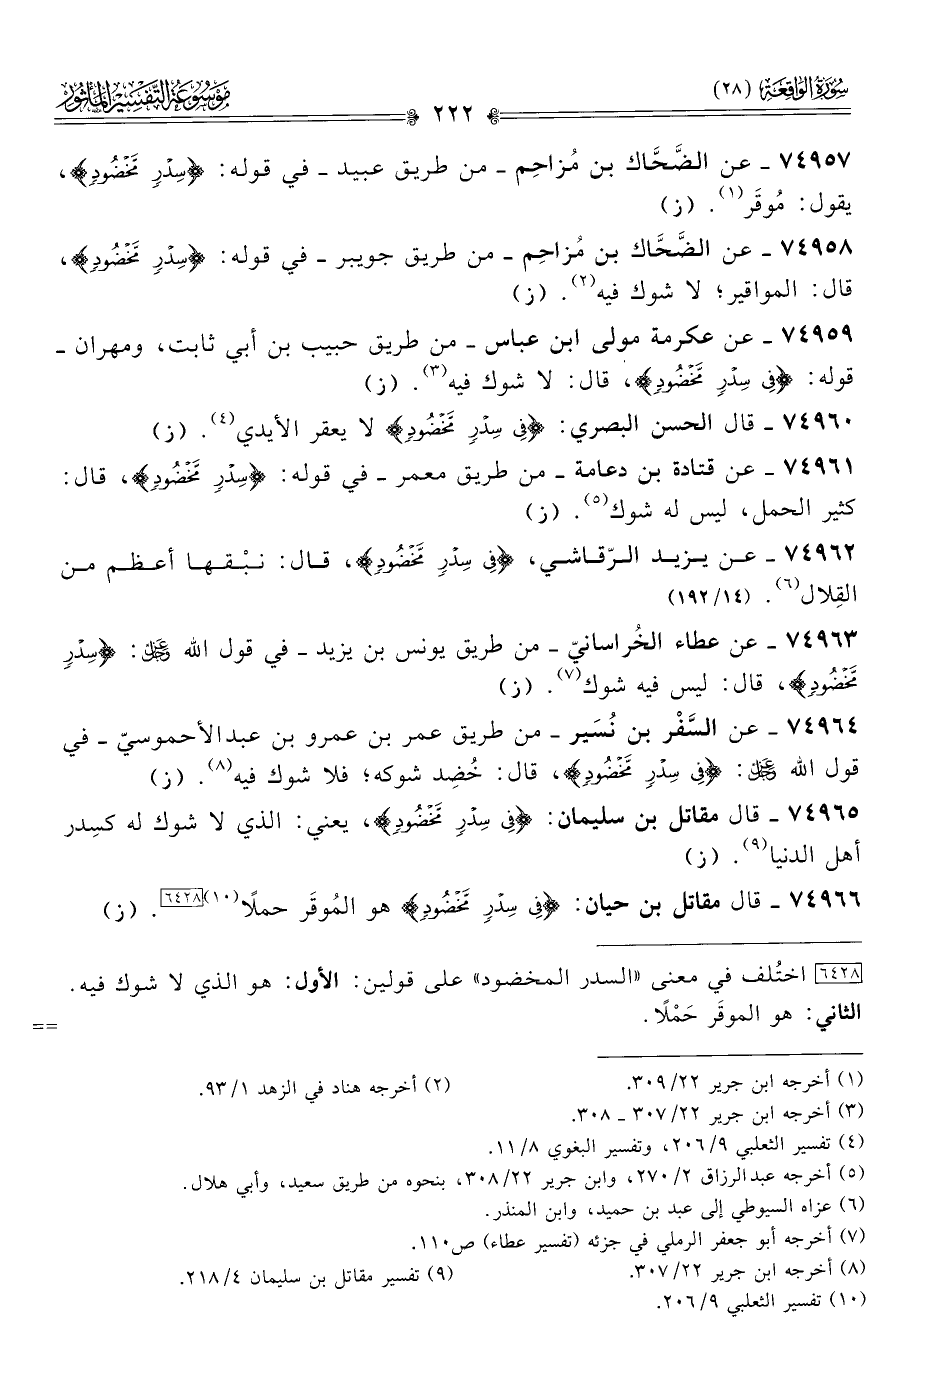 سُورَةُ الوَاقِعَةِ (٢٨)
٢٢٢
مَوْسُوعَة التَّفْسِير المَأْثُور
٧٤٩٥٧ ـ عن الضَّحَّاك بن مُزاحِم ـ من طريق عبيد ـ في قوله: ﴿سِدْرٍ مَّخْضُودٍ﴾،
يقول: مُوقَر(١). (ز)
٧٤٩٥٨ ـ عن الضَّحَّاك بن مُزاحِم ـ من طريق جويبر ـ في قوله: ﴿سِدْرٍ مَّخْضُودٍ﴾،
قال: المواقير؛ لا شوك فيه(٢). (ز)
٧٤٩٥٩ ـ عن عكرمة مولى ابن عباس ـ من طريق حبيب بن أبي ثابت، ومهران ـ
قوله: ﴿فِي سِدْرٍ مَّخْضُودٍ﴾، قال: لا شوك فيه(٣). (ز)
٧٤٩٦٠ ـ قال الحسن البصري: ﴿فِي سِدْرٍ مَّخْضُودٍ﴾ لا يعقر الأيدي(٤). (ز)
٧٤٩٦١ ـ عن قتادة بن دعامة ـ من طريق معمر ـ في قوله: ﴿سِدْرٍ مَّخْضُودٍ﴾، قال:
كثير الحمل، ليس له شوك(٥). (ز)
٧٤٩٦٢ ـ عن يزيد الرّقاشي، ﴿فِي سِدْرٍ مَّخْضُودٍ﴾، قال: نبْقها أعظم من
القِلال(٦). (١٩٢/١٤)
٧٤٩٦٣ ـ عن عطاء الخُراسانيّ ـ من طريق يونس بن يزيد ـ في قول الله ﷿: ﴿سِدْرٍ
مَّخْضُودٍ﴾، قال: ليس فيه شوك(٧). (ز)
٧٤٩٦٤ ـ عن السَّفْر بن نُسَير ـ من طريق عمر بن عمرو بن عبدالأحموسيّ ـ في
قول الله ﷿: ﴿فِي سِدْرٍ مَّخْضُودٍ﴾، قال: خُضِد شوكه؛ فلا شوك فيه(٨). (ز)
٧٤٩٦٥ ـ قال مقاتل بن سليمان: ﴿فِي سِدْرٍ مَّخْضُودٍ﴾، يعني: الذي لا شوك له كسِدر
أهل الدنيا(٩). (ز)
٧٤٩٦٦ ـ قال مقاتل بن حيان: ﴿فِي سِدْرٍ مَّخْضُودٍ﴾ هو المُوقَر حملًا(١٠)[٦٤٢٨]. (ز)
[٦٤٢٨] اختُلف في معنى «السدر المخضود» على قولين: الأول: هو الذي لا شوك فيه.
الثاني: هو الموقَر حَمْلًا.
==
(١) أخرجه ابن جرير ٣٠٩/٢٢.
(٢) أخرجه هناد في الزهد ٩٣/١.
(٣) أخرجه ابن جرير ٣٠٧/٢٢ ـ ٣٠٨.
(٤) تفسير الثعلبي ٢٠٦/٩، وتفسير البغوي ١١/٨.
(٥) أخرجه عبدالرزاق ٢٧٠/٢، وابن جرير ٣٠٨/٢٢، بنحوه من طريق سعيد، وأبي هلال.
(٦) عزاه السيوطي إلى عبد بن حميد، وابن المنذر.
(٧) أخرجه أبو جعفر الرملي في جزئه (تفسير عطاء) ص١١٠.
(٨) أخرجه ابن جرير ٣٠٧/٢٢.
(٩) تفسير مقاتل بن سليمان ٢١٨/٤.
(١٠) تفسير الثعلبي ٢٠٦/٩.